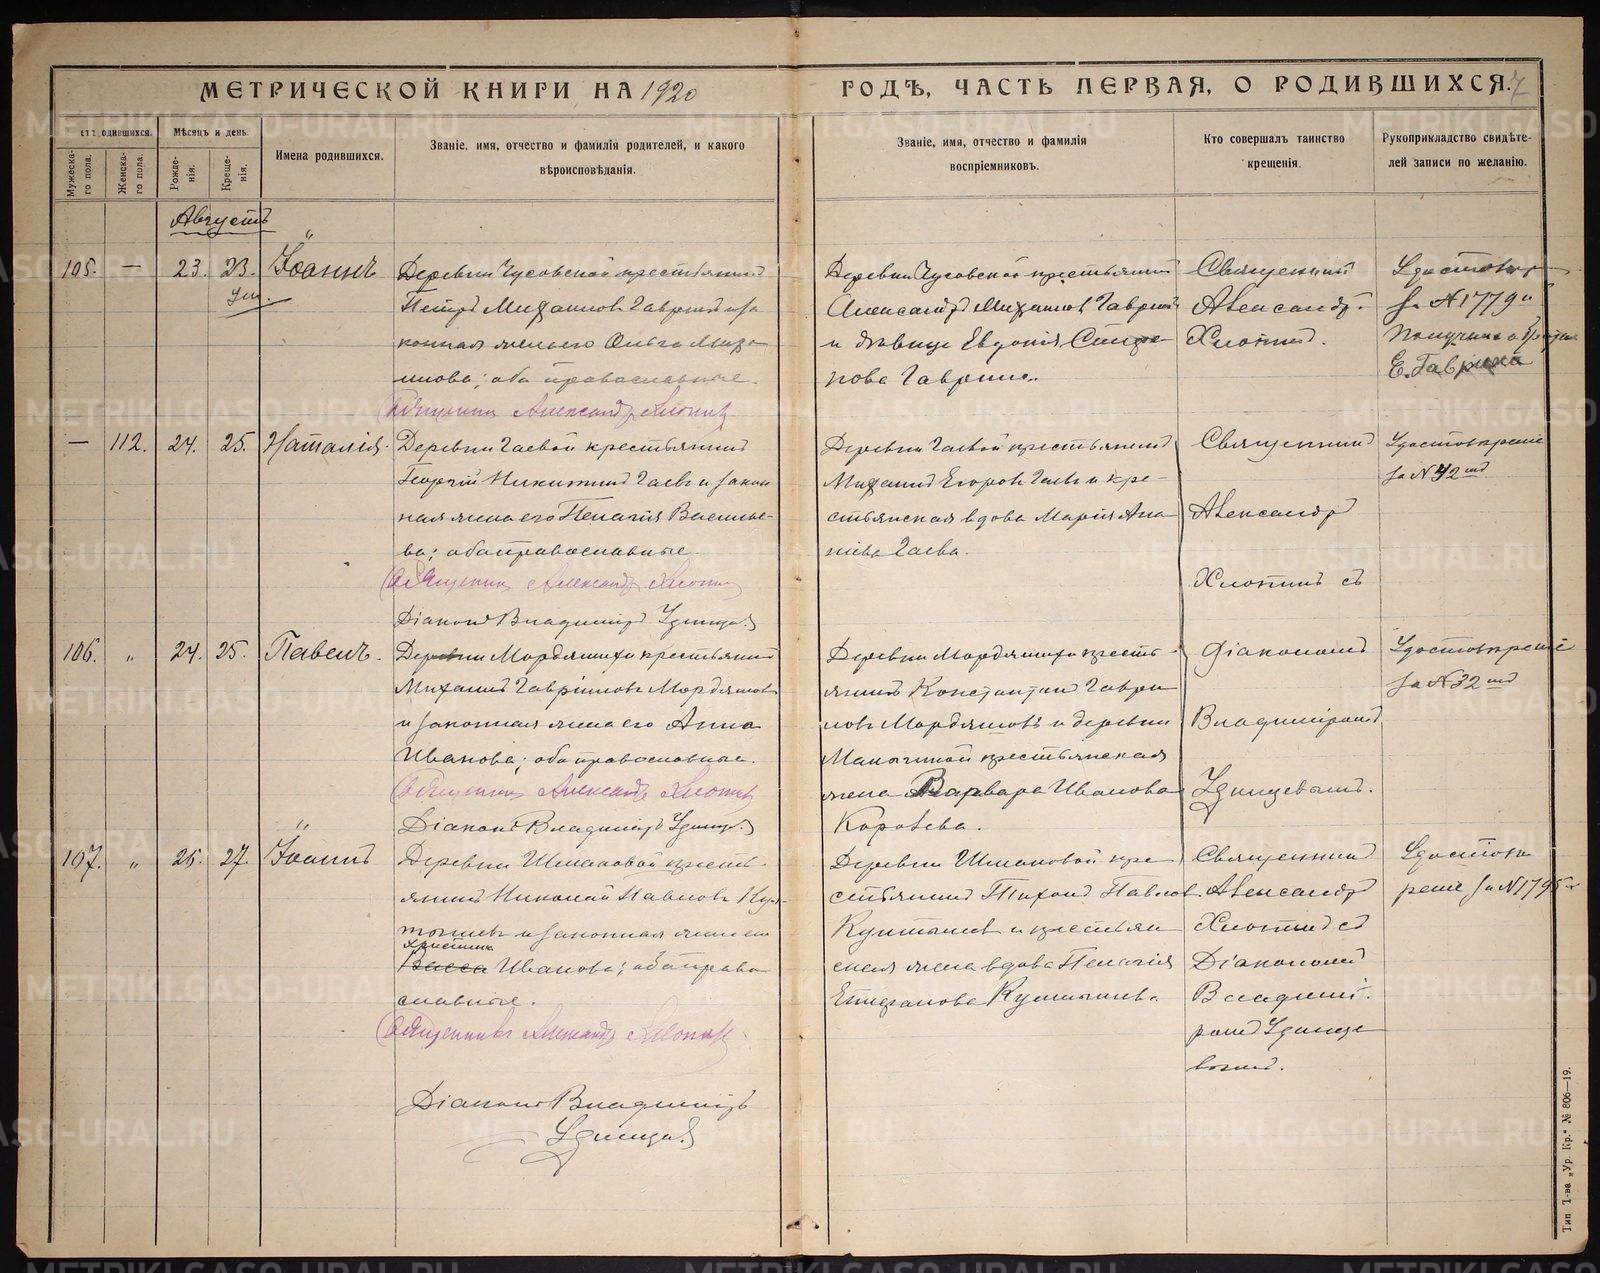 МЕТРИЧЕСКОЙ КНИГИ НА 1920
ГОДЪ, ЧАСТЬ ПЕРВАЯ, О РОДИВШИХСЯ. 7
одившихся.
Мѣсяцъ и день.
Мужеска-го пола.
Женска-го пола.
Рожде-нія.
Креще-нія.
Имена родившихся.
Званіе, имя, отчество и фамилія родителей, и какого
вѣроисповѣданія.
Званіе, имя, отчество и фамилія
воспріемниковъ.
Кто совершалъ таинство
крещенія.
Рукоприкладство свидѣте-
лей записи по желанію.
Августъ
105. — 23. 23. Іоаннъ
Деревни Чусовской крестьянинъ
Петръ Михаиловъ Гавринъ и за
конная жена его Ольга Миха
илова; оба православные.
Священникъ Александръ Хлопинъ
Деревни Чусовской крестьянинъ
Александръ Михаиловъ Гавринъ
и дѣвица Евдокія Стефа
нова Гаврина.
Священникъ
Александръ
Хлопинъ.
Удостовер
за № 1779
Получила
Е. Гаврина
— 112. 24. 25. Наталія.
Деревни Гаевой крестьянинъ
Георгій Никитинъ Гаевъ и закон
ная жена его Пелагія Василье-
ва; оба православные.
Священникъ Александръ Хлопинъ
Діаконъ Владимиръ Удинцевъ
Деревни Гаевой крестьянинъ
Михаилъ Егоровъ Гаевъ и кре-
стьянская вдова Марія Ана
ніева Гаева.
Священникъ
Александръ
Хлопинъ съ
Удостовѣреніе
за №
106. „ 24. 25. Павелъ.
Деревни Мордяшихи крестьянинъ
Михаилъ Гавріиловъ Мордяшовъ
и законная жена его Анна
Иванова; оба православные.
Священникъ Александръ Хлопинъ
Діаконъ Владимиръ Удинцевъ
Деревни Мордяшихи кресть-
янинъ Константинъ Гаври
ловъ Мордяшовъ и деревни
крестьянская
жена Варвара Иванова
Діакономъ
Владиміромъ
Удинцевымъ.
Удостовѣреніе
за № 32
107. „ 26. 27. Іоаннъ
Деревни Шмаковой кресть-
янинъ Николай Павловъ Кук-
и законная жена его
Христина
Васса Иванова; оба право
славные.
Священникъ Александръ Хлопинъ
Діаконъ Владимиръ
Удинцевъ
Деревни Шмаковой кре
стьянинъ Тихонъ Павлов
и крестьян
ская жена вдова Пелагія
Епифанова
Священникъ
Александръ
Хлопинъ съ
Діакономъ
Владимі-
ромъ Удинце
вымъ.
Удостовѣ
реніе за № 1795
Тип. Т-ва „Ур. Кр." № 806—19.
METRIKI.GASO-URAL.RU